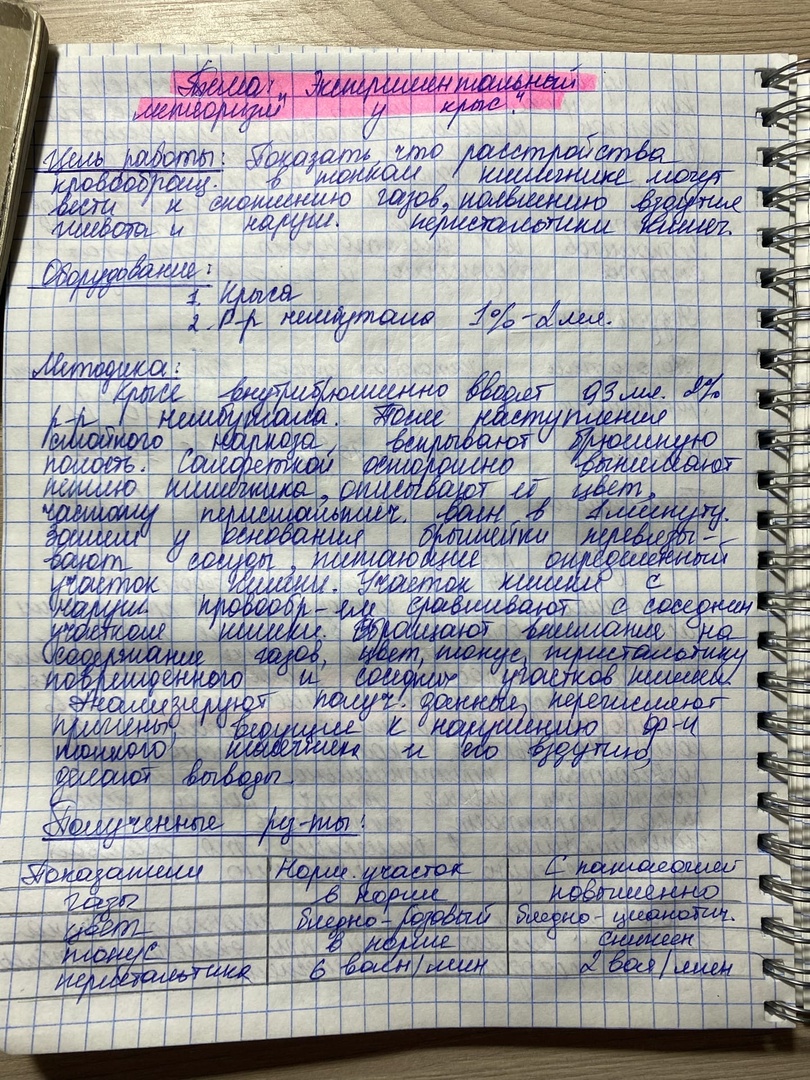 Тема: „Экспериментальный
метеоризм у крыс."
Цель работы: Показать что расстройства
кровообращ. в тонком кишечнике могут
вести к скоплению газов, появлению вздутия
живота и наруш. перистальтики кишеч.
Оборудование:
1. Крыса
2. Р-р нембутала 1%-2мл.
Методика:
Крысе внутрибрюшинно вводят 0,3 мл. 2%
р-р нембутала. После наступления
глубокого наркоза, вскрывают брюшную
полость. Салфеткой осторожно вынимают
петлю кишечника, описывают её цвет,
частоту перистальтич. волн в 1 минуту.
Затем у основания брыжейки перевязы-
вают сосуды, питающие определенный
участок кишки. Участок кишки с
наруш кровообр-ем сравнивают с соседним
участком кишки. Обращают внимание на
содержание газов, цвет, тонус, перистальтику
поврежденного и соседних участков кишки
Анализируют получ. данные, перечисляют
причины, ведущие к нарушению ф-и
тонкого кишечника и его вздутию,
делают выводы.
Полученные рез-ты:
Показатели Норм. участок С патологией
газы в норме повышенно
цвет бледно-розовый бледно-цианотич.
тонус в норме снижен
перистальтика 6 волн/мин 2 вол/мин